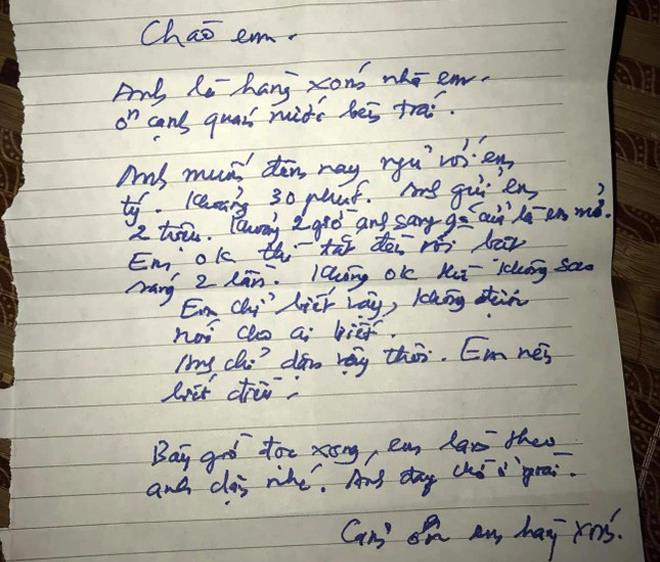 Chào em.
Anh là hàng xóm nhà em.
ở cạnh quán nước bên trái.
Anh muốn đêm nay ngủ với em
tý. Khoảng 30 phút. Anh gửi em
2 triệu. Khoảng 2 giờ anh sang gõ cửa là em mở.
Em ok thì tắt đèn rồi bật
sáng 2 lần. Không ok thì không sao
Em chỉ biết vậy, không được
nói cho ai biết.
Anh chỉ dặn vậy thôi. Em nên
biết điều.
Bây giờ đọc xong, em làm theo
anh dặn nhé. Anh đang chờ ở
Cảm ơn em hàng xóm.